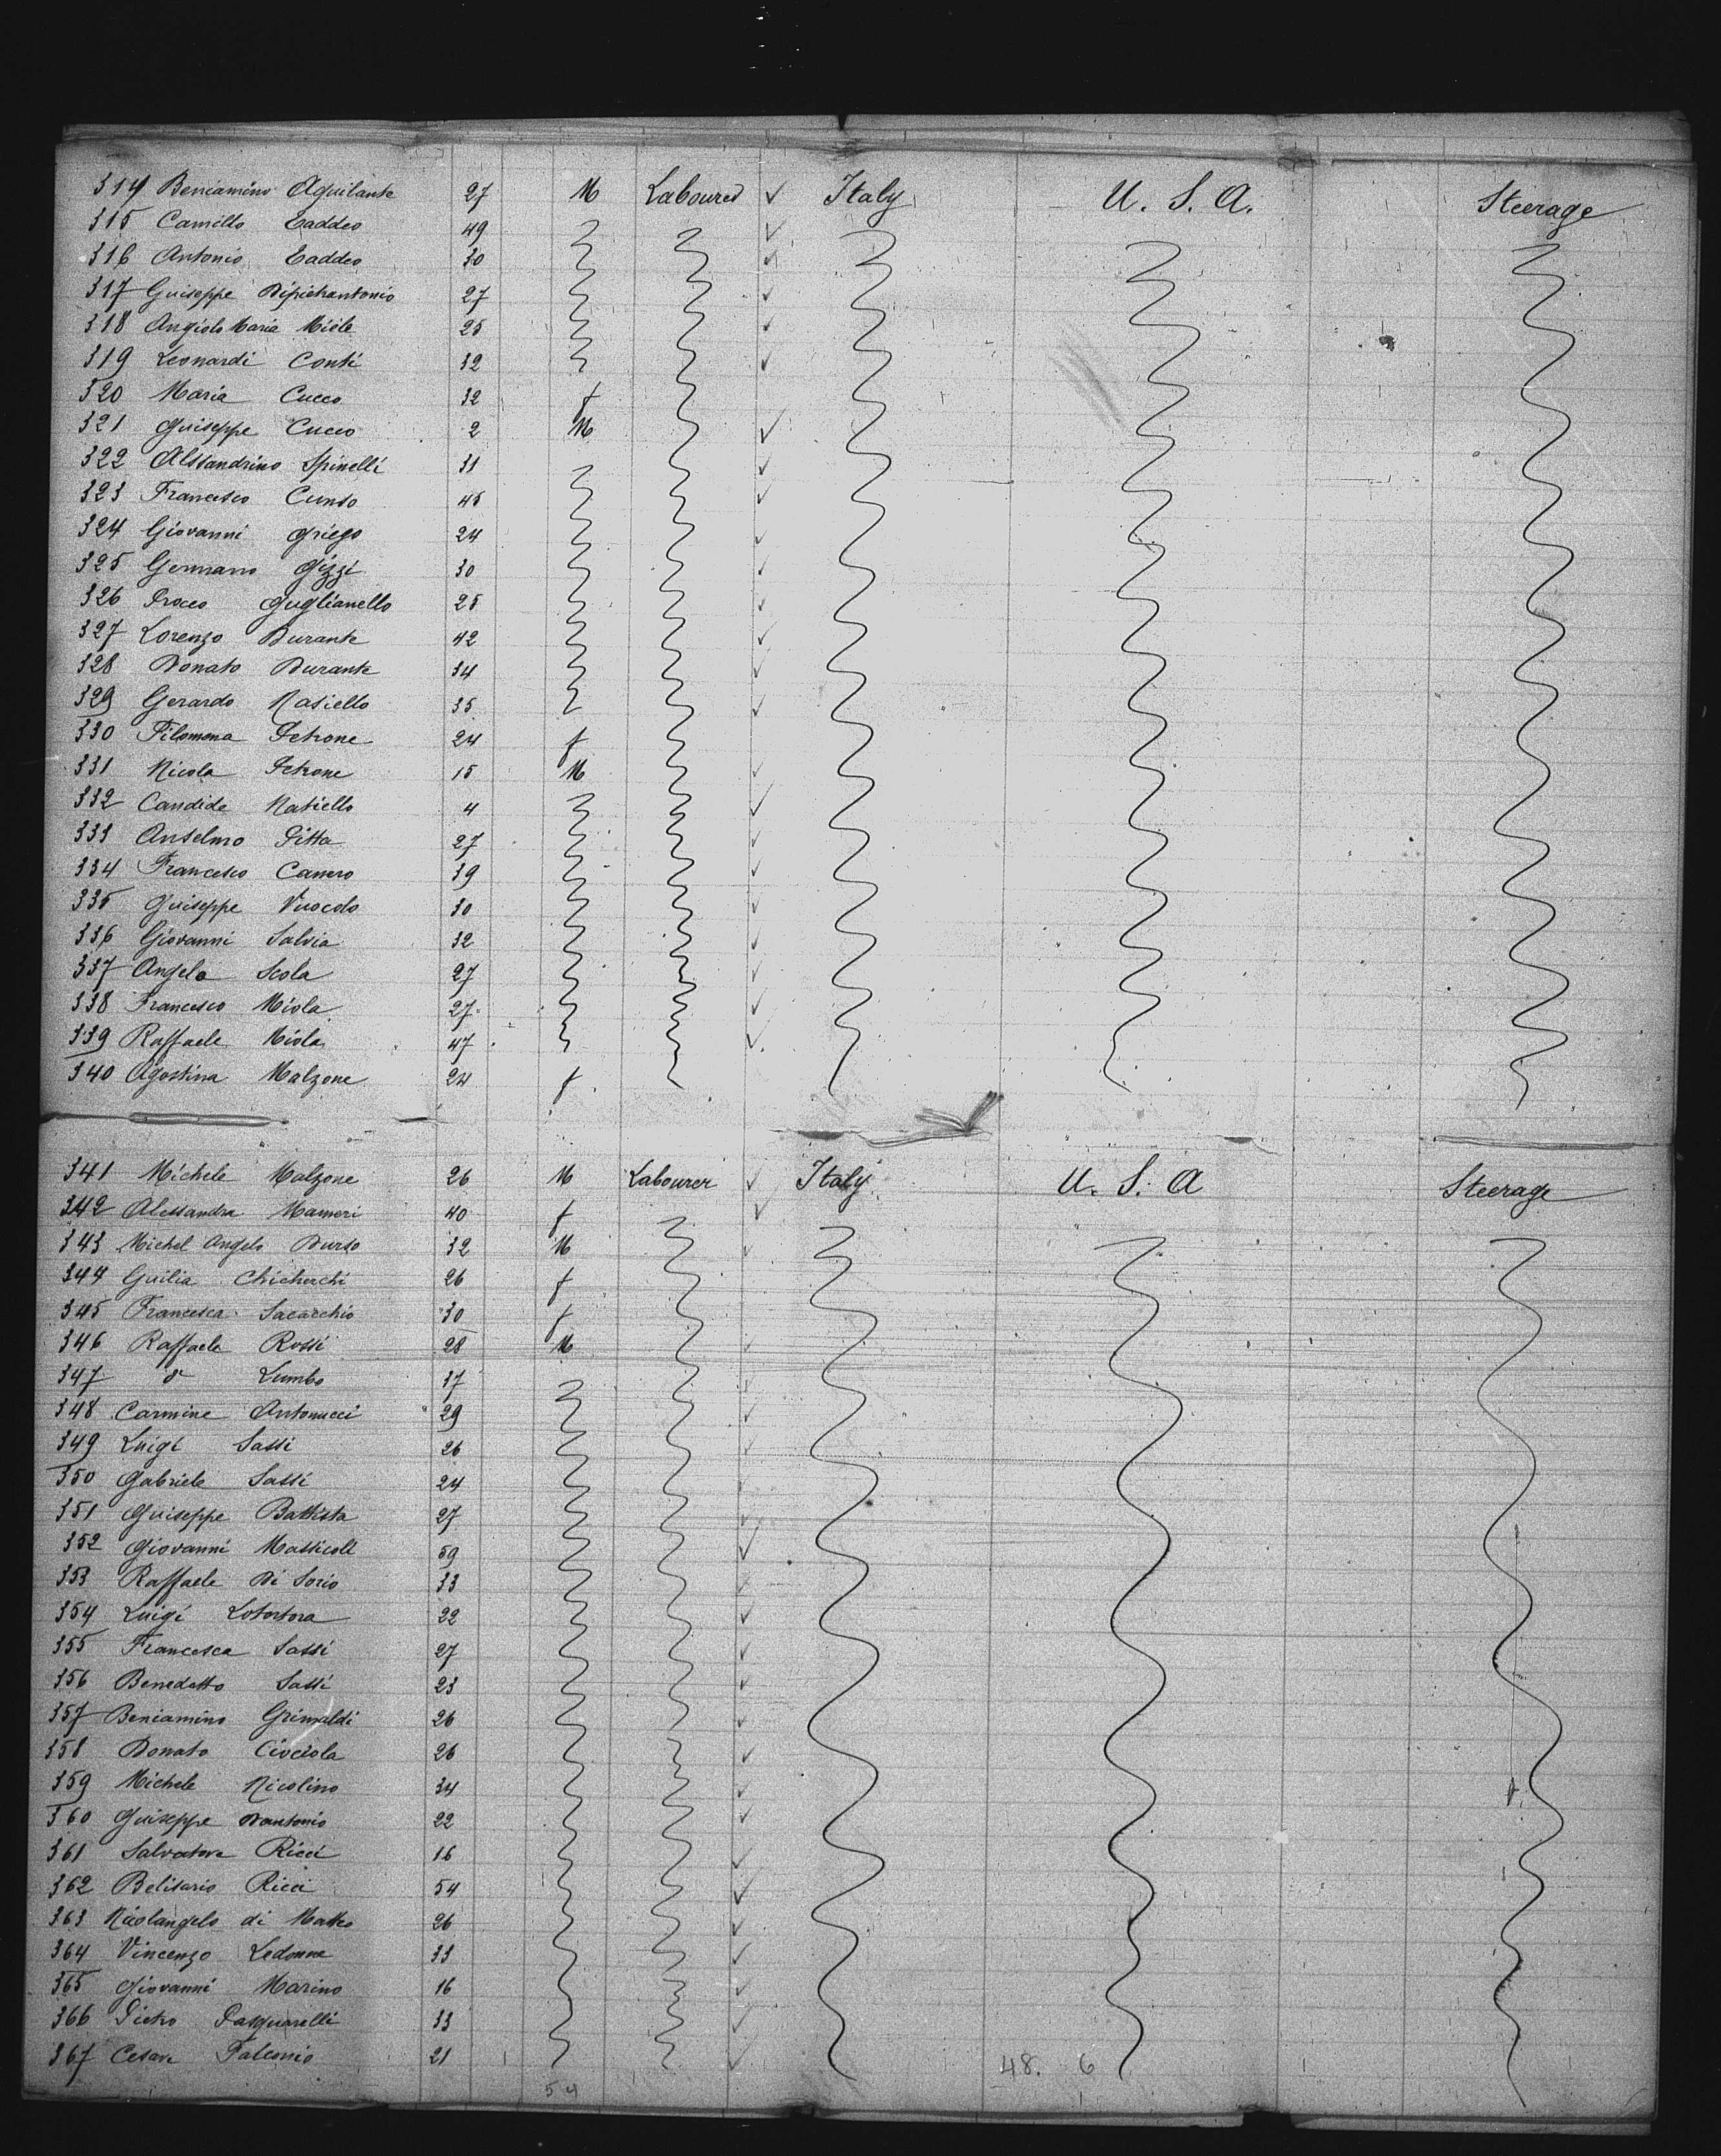 314 Beniamino Aquilante 27 M Labourer ✓ Italy U. S. A. Steerage
315 Camillo Taddeo 49 ✓
316 Antonio Taddeo 30 ✓
317 Guiseppe Dipietrantonio 27 ✓
318 Angiolo Maria Miele 25 ✓
319 Leonardi Conti 32 ✓
320 Maria Cucco 32 f
321 Guiseppe Cucco 2 M ✓
322 Alssandrino Spinelli 31 ✓
323 Francesco Cunso 45 ✓
324 Giovanni Griego 24 ✓
325 Germano Gizzi 30 ✓
326 Rocco Guglianello 25 ✓
327 Lorenzo Durante 42 ✓
328 Donato Durante 34 ✓
329 Gerardo Nasiello 35 ✓
330 Filomena Petrone 24 f
331 Nicola Petrone 15 M ✓
332 Candide Natiello 4 ✓
333 Anselmo Pitta 27 ✓
334 Francesco Canero 39 ✓
335 Guiseppe Vuocolo 30 ✓
336 Giovanni Salvia 32 ✓
337 Angelo Scola 27 ✓
338 Francesco Miola 27 ✓
339 Raffaele Miola 47 ✓
340 Agostina Malzone 24 f
341 Michele Malzone 26 M Labourer ✓ Italy U. S. A Steerage
342 Alessandra Mameri 40 f ✓
343 Michel Angelo Durso 32 M ✓
344 Guilia Chicherchi 26 f
345 Francesca Sacacchio 30 f
346 Raffaele Rossi 28 M ✓
347 do Lumbo 37 ✓
348 Carmine Antonucci 29 ✓
349 Luigi Sassi 26 ✓
350 Gabriele Sassi 24 ✓
351 Guiseppe Battista 27 ✓
352 Giovanni Massicoll 59 ✓
353 Raffaele Di Sorio 33 ✓
354 Luigi Lotortora 22 ✓
355 Francesca Sassi 27 ✓
356 Benedetto Sassi 23 ✓
357 Beniamino Grimaldi 26 ✓
358 Donato Ciociola 26 ✓
359 Michele Nicolino 34 ✓
360 Guiseppe Dantonio 22 ✓
361 Salvatore Ricci 16 ✓
362 Belisario Ricci 54 ✓
363 Nicolangelo di Matteo 26 ✓
364 Vincenzo Ledonne 33 ✓
365 Giovanni Marino 16 ✓
366 Pietro Pasquarelli 33 ✓
367 Cesare Falconio 21 ✓
54 48. 6